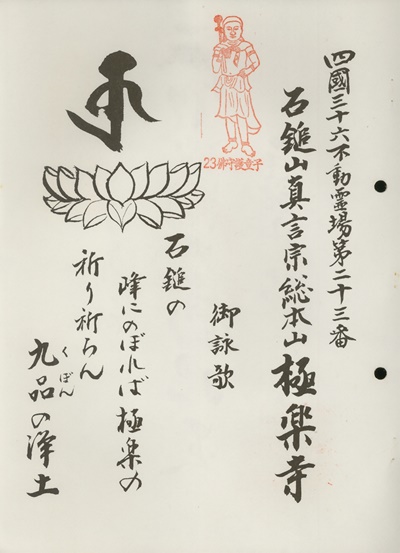 四國三十六不動霊場第二十三番
石鎚山真言宗総本山 極楽寺
23佛守護童子
御詠歌
石鎚の
峰にのぼれば極楽の
祈り祈らん
九品の浄土
くぼん